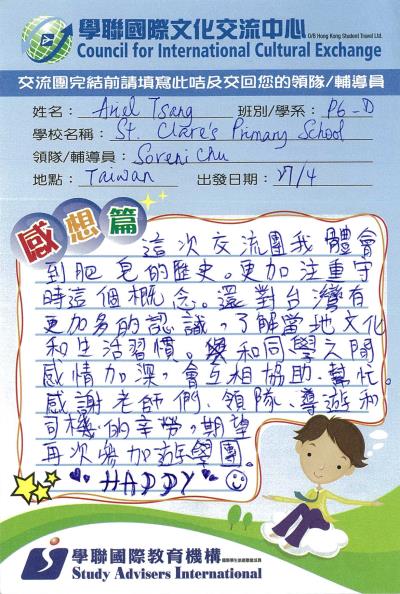 學聯國際文化交流中心 O/B Hong Kong Student Travel Ltd.
Council for International Cultural Exchange
交流團完結前請填寫此咭及交回您的領隊/輔導員
姓名： Ariel Tsang 班別/學系： P6-D
學校名稱： St. Clare's Primary School
領隊/輔導員： Soreni Chu
地點： Taiwan 出發日期： 27/4
感想篇
這次交流團我體會
到肥皂的歷史。更加注重守
時這個概念。還對台灣有
更加多的認識，了解當地文化
和生活習慣。與和同學之間
感情加深，會互相協助、幫忙。
感謝老師們、領隊、導遊和
司機的辛勞，期望
再次參加遊學團。
HAPPY
學聯國際教育機構
Study Advisers International